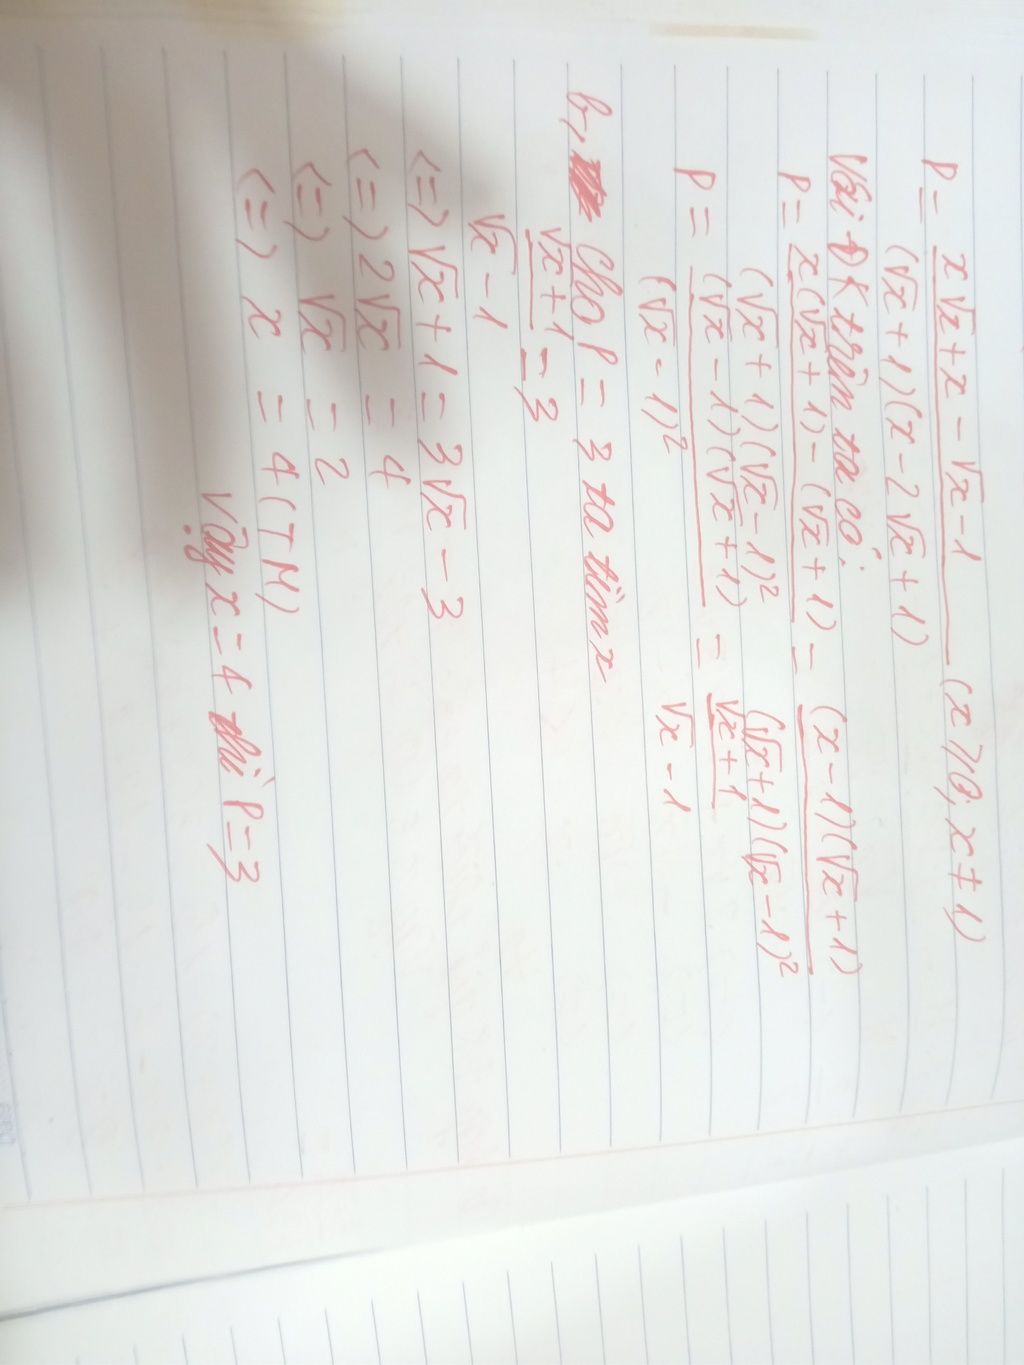 P = x√x + x - √x - 1 / (√x + 1)(x - 2√x + 1) (x ⩾ 0; x ≠ 1)
Với ĐK trên ta có:
P = x(√x + 1) - (√x + 1) / (√x + 1)(√x - 1)² = (x - 1)(√x + 1) / (√x + 1)(√x - 1)²
P = (√x - 1)(√x + 1) / (√x - 1)² = √x + 1 / √x - 1
b, Cho P = 3 ta tìm x
√x + 1 / √x - 1 = 3
<=> √x + 1 = 3√x - 3
<=> 2√x = 4
<=> √x = 2
<=> x = 4 (TM)
Vậy x = 4 thì P = 3